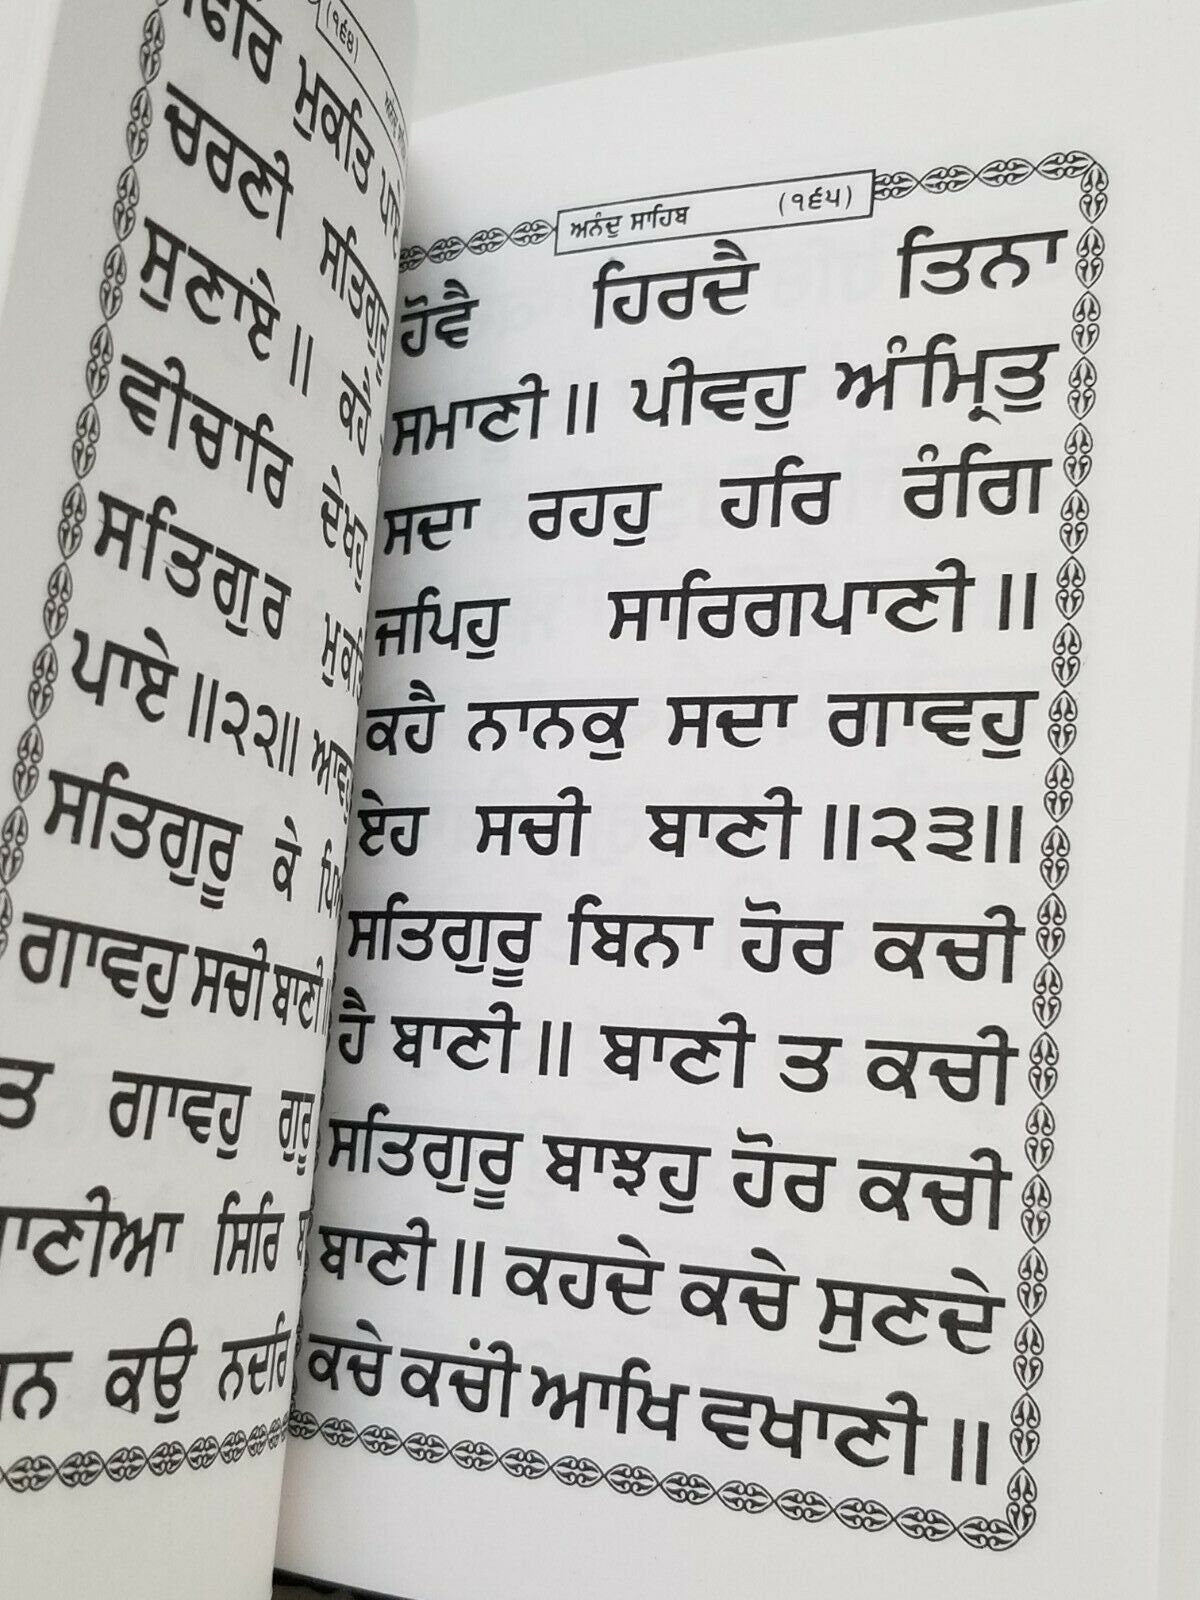 (੧੬੪)
ਮੁਕਤਿ ਪਾਏ
ਚਰਣੀ ਸਤਿਗੁਰੂ
ਸੁਣਾਏ॥ ਕਹੈ
ਵੀਚਾਰਿ ਦੇਖਹੁ
ਸਤਿਗੁਰ ਮੁਕਤਿ
ਪਾਏ॥੨੨॥
ਸਤਿਗੁਰੂ ਕੇ
ਗਾਵਹੁ ਸਚੀ ਬਾਣੀ॥
ਤ ਗਾਵਹੁ ਗੁਰੂ
ਸਿਰਿ
ਕਉ ਨਦਰਿ
ਅਨੰਦੁ ਸਾਹਿਬ (੧੬੫)
ਹੋਵੈ ਹਿਰਦੈ ਤਿਨਾ
ਸਮਾਣੀ॥ ਪੀਵਹੁ ਅੰਮ੍ਰਿਤੁ
ਸਦਾ ਰਹਹੁ ਹਰਿ ਰੰਗਿ
ਜਪਿਹੁ ਸਾਰਿਗਪਾਣੀ॥
ਕਹੈ ਨਾਨਕੁ ਸਦਾ ਗਾਵਹੁ
ਏਹ ਸਚੀ ਬਾਣੀ॥੨੩॥
ਸਤਿਗੁਰੂ ਬਿਨਾ ਹੋਰ ਕਚੀ
ਹੈ ਬਾਣੀ॥ ਬਾਣੀ ਤ ਕਚੀ
ਸਤਿਗੁਰੂ ਬਾਝਹੁ ਹੋਰ ਕਚੀ
ਬਾਣੀ॥ ਕਹਦੇ ਕਚੇ ਸੁਣਦੇ
ਕਚੇ ਕਚੀਂ ਆਖਿ ਵਖਾਣੀ॥